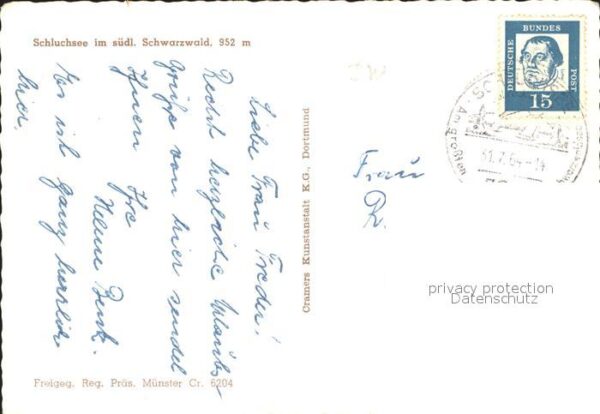 Schluchsee im südl. Schwarzwald, 952 m
Liebe Frau
Recht herzliche Urlaubs-
grüße von hier sendet
Ihnen Ihre
Helene
Es ist ganz herrlich
hier.
Cramers Kunstanstalt K.G., Dortmund
Freigeg. Reg. Präs. Münster Cr. 6204
DEUTSCHE
BUNDES
POST
15
Am großen
Frau
R.
privacy protection
Datenschutz